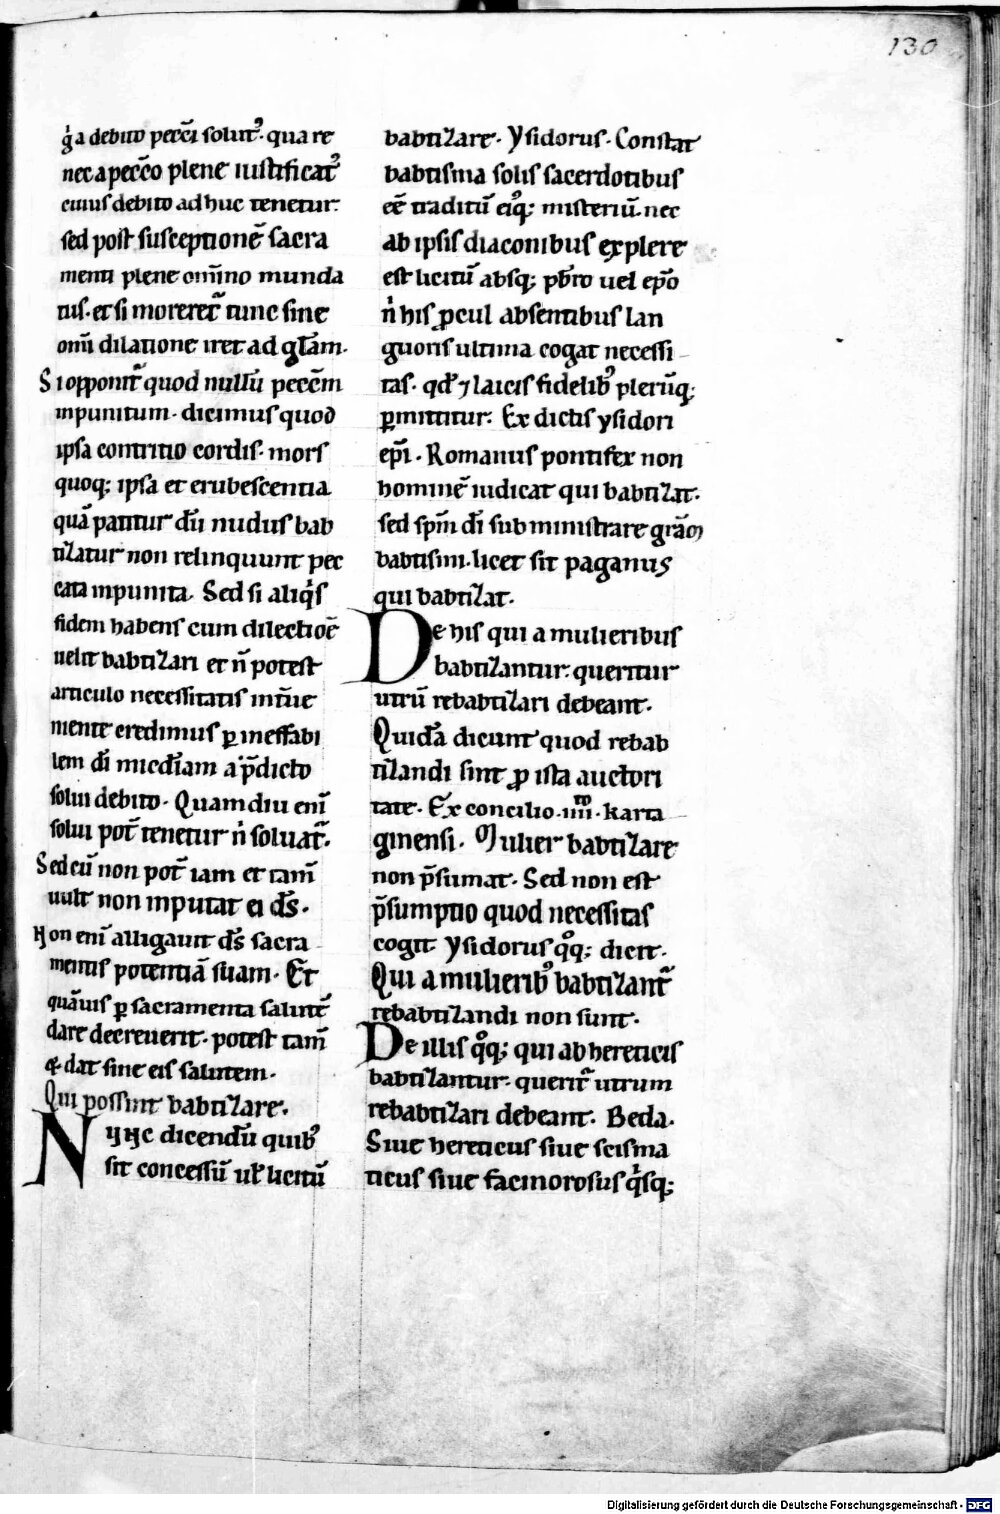 130
g̍a debito pecc̄i solut᷒. qua re
nec a pecc̄o plene iustificat᷒
cuius debito ad huc tenetur.
sed post susceptionē sacra
menti plene om̄ino munda
tus. et si morereť tunc sine
omni dilatione iret ad gl̄am.
Si opponit᷑ quod nullū pecc̄m
inpunitum. dicimus quod
ipsa contritio cordis. mors
quoq; ipsa et erubescentia
quā patitur dū nudus bab
tizatur non relinquunt pec
cata inpunita. Sed si aliq̍s
fidem habens cum dilectioē
uelit babtizari et n̄ potest
articulo necessitatis int̄ue
niente credimus ꝑ ineffabi
lem dī mic̄diam a p̄dicto
solui debito. Quam diu enī
solui pot̄ tenetur n̍ soluat᷑.
Sed cū non pot̄ iam et tam̄
uult non inputat ei ds̄.
Non enī alligauit ds̄ sacra
mentis potentiā suam. Et
quāuis ꝑ sacramenta salutē
dare decreuerit. potest tam̄
& dat sine eis salutem.
Qui possint babtizare.
Nunc dicendū quib᷒
sit concessū uł licitū
babtizare. Ysidorus. Constat
babtisma solis sacerdotibus
eē traditū ei᷒q; misteriū. nec
ab ipsis diaconibus explere
est licitū absq; pb̄ro uel ep̄o
n̍ his ꝓcul absentibus lan
guoris ultima cogat necessi
tas. qđ ⁊ laicis fidelib᷒ pleru̅q;
ꝑmittitur. Ex dictis ysidori
ep̄i. Romanus pontifex non
hominē iudicat qui babtizat.
sed sp̄m dī subministrare grām
babtismi. licet sit paganus
qui babtizat.
De his qui a mulieribus
babtizantur. queritur
utrū rebabtizari debeant.
Quidā dicunt quod rebab
tizandi sint ꝓ ista auctori
tate. Ex concilio .iiii.to karta
ginensi. Mulier babtizare
non p̄sumat. Sed non est
p̄sumptio quod necessitas
cogit Ysidorus qͦq; dicit.
Qui a mulierib᷒ babtizant᷑
rebabtizandi non sunt.
De illis qͦq; qui ab hereticis
babtizantur. querit᷑ utrum
rebabtizari debeant. Beda.
Siue hereticus siue scisma
ticus siue facinorosus q̍sq;
Digitalisierung gefördert durch die Deutsche Forschungsgemeinschaft - DFG